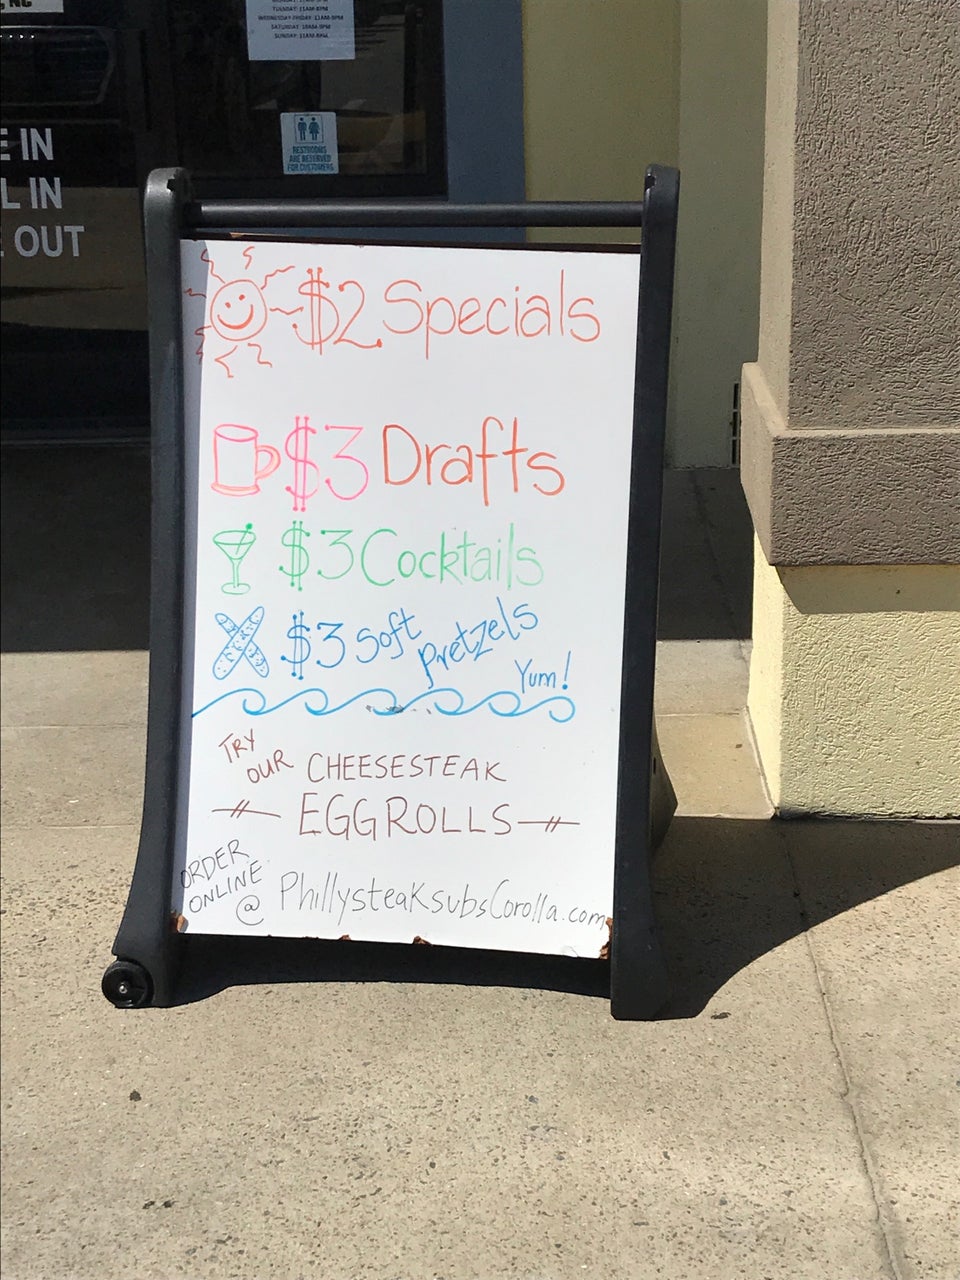 , NC
TUESDAY: 11AM-8PM
WEDNESDAY-FRIDAY: 11AM-9PM
SATURDAY: 10AM-9PM
SUNDAY: 11AM-8PM
RESTROOMS
ARE RESERVED
FOR CUSTOMERS
E IN
L IN
E OUT
$2 Specials
$3 Drafts
$3 Cocktails
$3 Soft Pretzels
Yum!
TRY
OUR CHEESESTEAK
EGGROLLS
ORDER
ONLINE
@ PhillysteaksubsCorolla.com